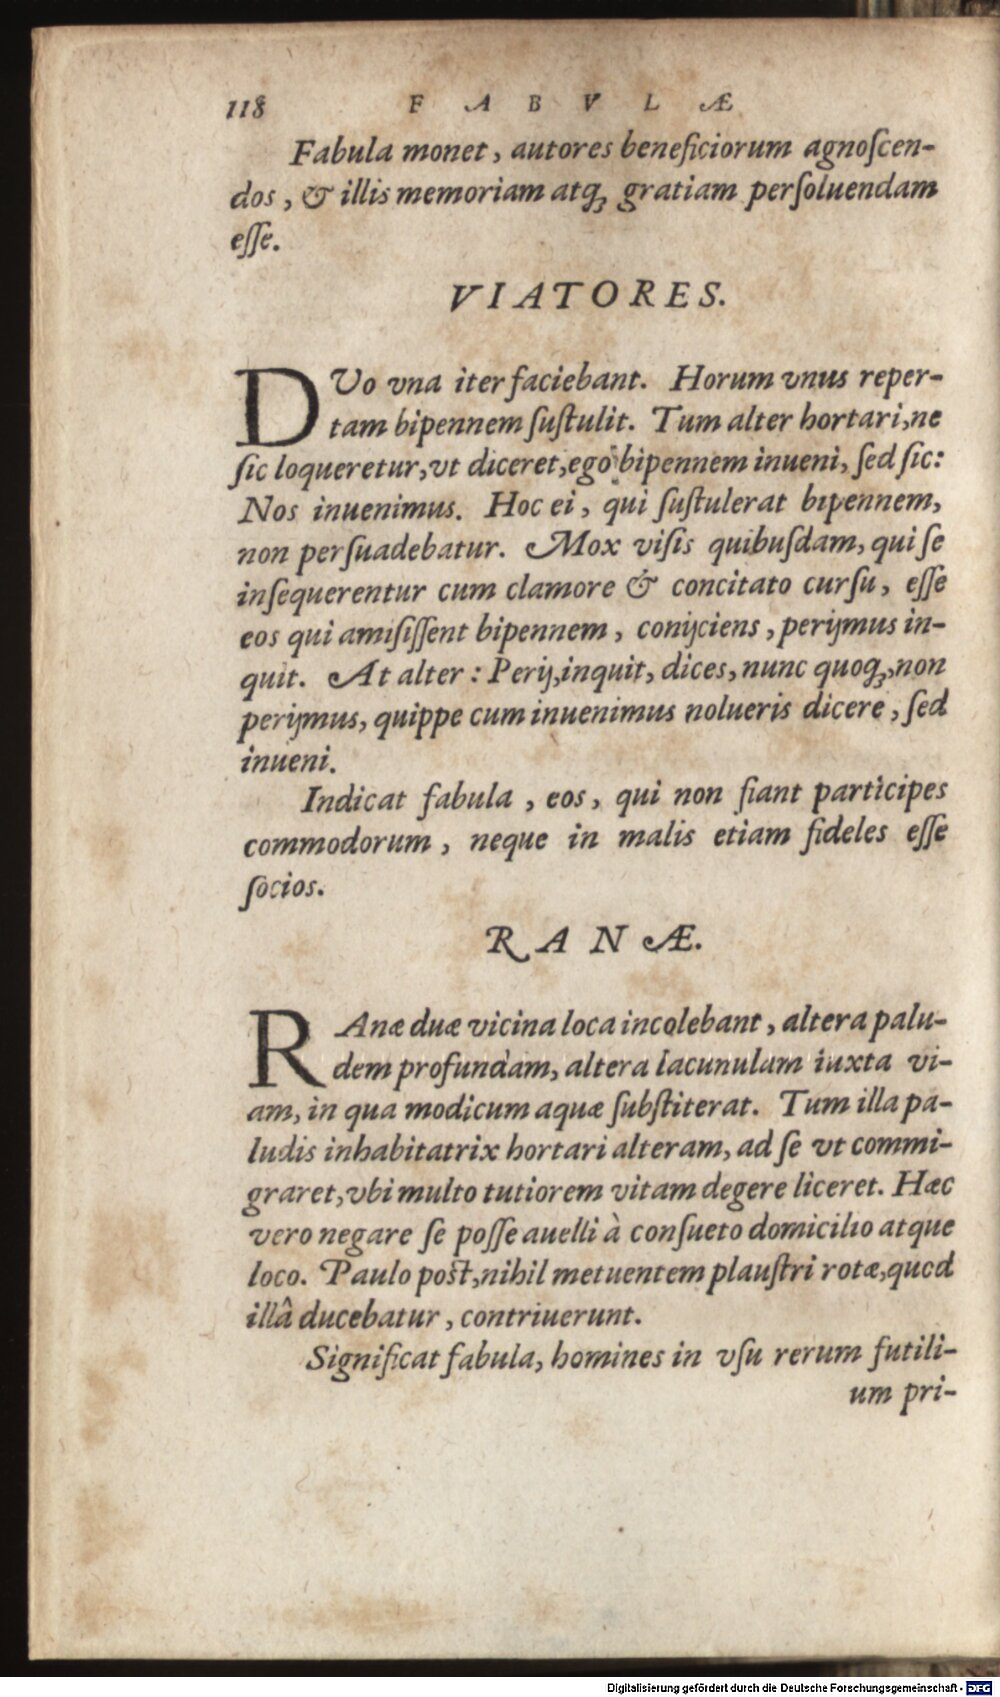 118 FABVLÆ
Fabula monet, autores beneficiorum agnoſcen-
dos, & illis memoriam atqꝫ gratiam perſoluendam
eſſe.
VIATORES.
DVo vna iter faciebant. Horum vnus reper-
tam bipennem ſuſtulit. Tum alter hortari, ne
ſic loqueretur, vt diceret, ego bipennem inueni, ſed ſic:
Nos inuenimus. Hoc ei, qui ſuſtulerat bipennem,
non perſuadebatur. Mox viſis quibuſdam, qui ſe
inſequerentur cum clamore & concitato curſu, eſſe
eos qui amiſiſſent bipennem, conijciens, perijmus in-
quit. At alter: Perij, inquit, dices, nunc quoqꝫ, non
perijmus, quippe cum inuenimus nolueris dicere, ſed
inueni.
Indicat fabula, eos, qui non fiant participes
commodorum, neque in malis etiam fideles eſſe
ſocios.
RANÆ.
RAnæ duæ vicina loca incolebant, altera palu-
dem profundam, altera lacunulam iuxta vi-
am, in qua modicum aquæ ſubſtiterat. Tum illa pa-
ludis inhabitatrix hortari alteram, ad ſe vt commi-
graret, vbi multo tutiorem vitam degere liceret. Hæc
vero negare ſe poſſe auelli à conſueto domicilio atque
loco. Paulo poſt, nihil metuentem plauſtri rotæ, quod
illâ ducebatur, contriuerunt.
Significat fabula, homines in vſu rerum futili-
um pri-
Digitalisierung gefördert durch die Deutsche Forschungsgemeinschaft - DFG